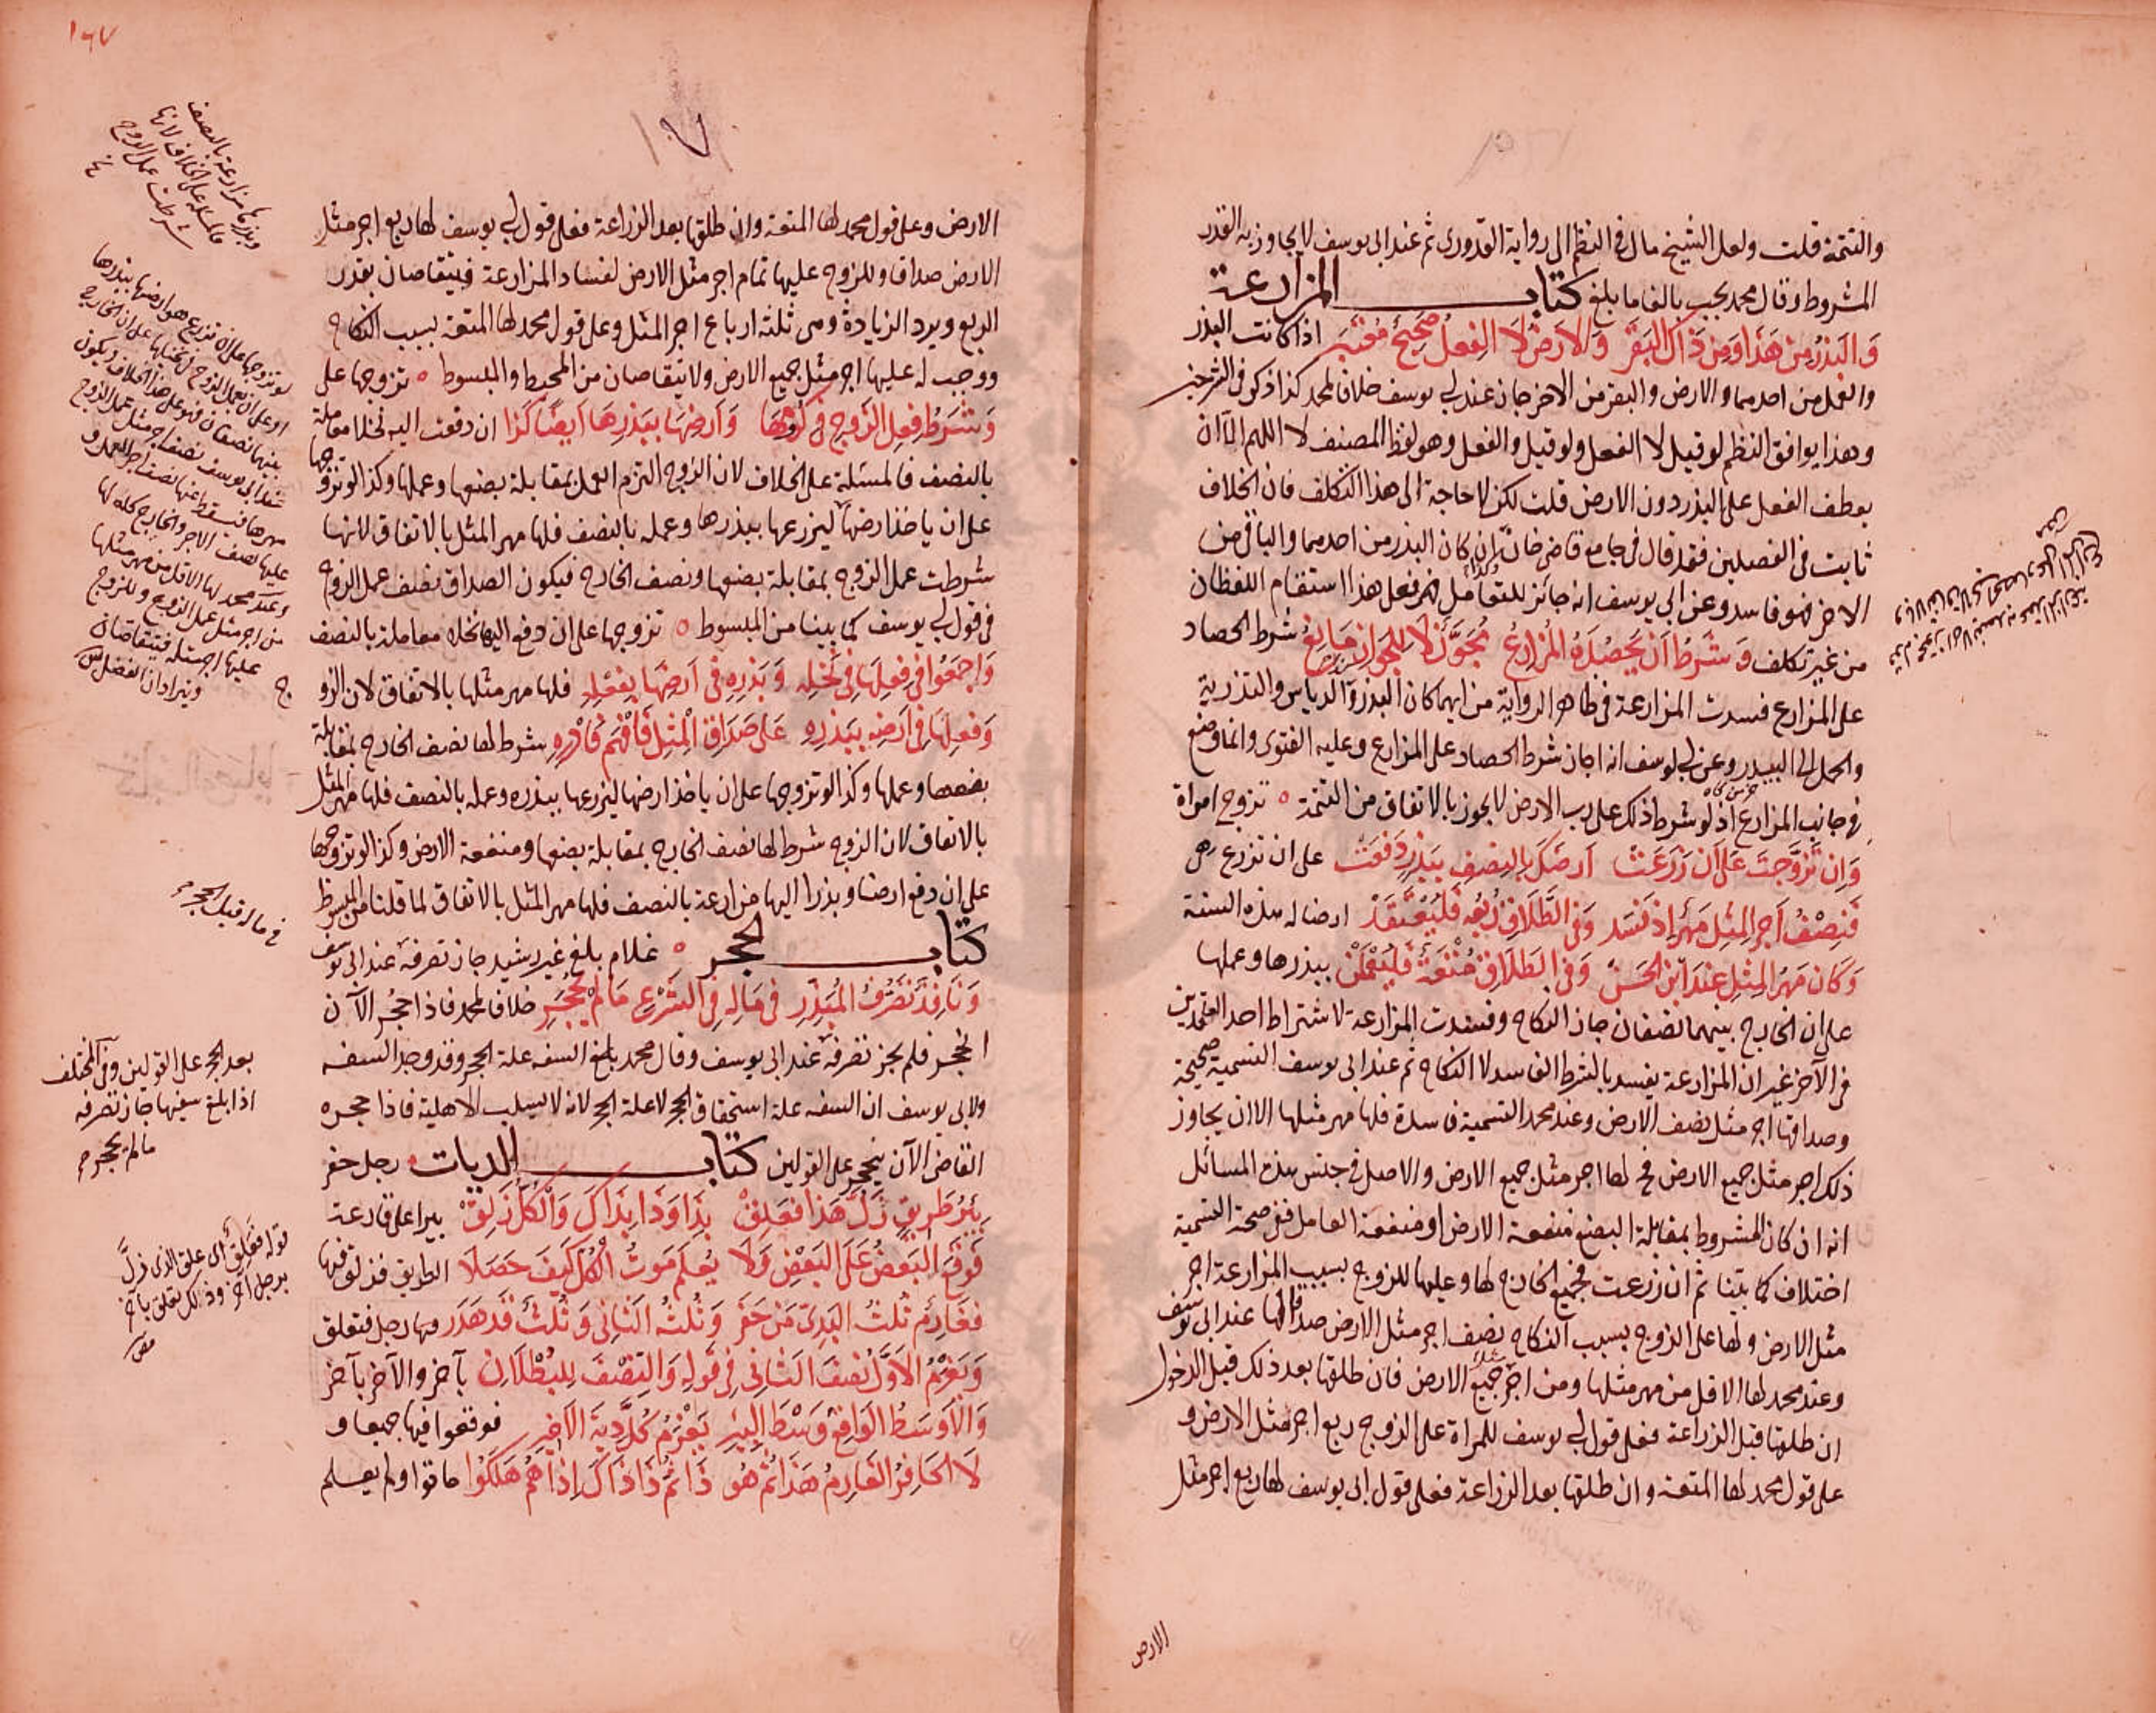 والتتمة قلت ولعل الشيخ مال في النظم الى رواية القدورى ثم عند ابى يوسف لا يجاوز به القدر
المشروط وقال محمد يجب بالغا ما بلغ كتاب المزارعة
وَالبَذرُ مِن هَذا وَمِن ذَاكَ البَقَر وَالاَرضُ لَا الفِعلُ صَحِيحٌ مُعتَبَر اذا كانت البذر
والعمل من احدهما والارض والبقر من الاخر جاز عند ابي يوسف خلافا لمحمد كذا ذكر في الشرحين
وهذا يوافق النظم لو قيل لا الفعل ولو قيل والفعل وهو لفظ المصنف لا اللهم الا ان
يعطف الفعل على البذر دون الارض قلت لكن لا حاجة الى هذا التكلف فان الخلاف
ثابت في الفصلين فقد قال في جامع قاضى خان ان كان البذر من احدهما والباقى من
الاخر فهو فاسد وعن ابى يوسف انه جائز للتعامل فعل هذا استقام اللفظان
من غير تكلف وَشَرطُ اَن يَحصُدَهُ المُزَارِعُ مُجَوَّزٌ لَا لِلجَوَازِ مَانِعُ شرط الحصاد
على المزارع فسدت المزارعة في ظاهر الرواية من ايهما كان البذر والدياس والتذرية
والحمل الى البيدر وعن ابي يوسف انه اجاز شرط الحصاد على المزارع وعليه الفتوى وانما وضع
في جانب المزارع اذ لو شرط ذلك على رب الارض لا يجوز بالاتفاق من التتمة تزوج امراة
وَاِن تَزَوَّجتَ عَلَى اَن زَرَعَت اَرضَكَ بِالنِصفِ بِبَذرٍ دَفَعَت على ان تزرع هى
فَنِصفُ اَجرِ المِثلِ مَهرٌ اِذ فَسَد وَفِى الطَّلَاقِ رُبعُهُ فَليُعتَقَد ارضا له هذه السنة
وَكَانَ مَهرُ المِثلِ عِندَ ابنِ الحَسَن وَفِى الطَلَاقِ مُتعَةٌ فَليُعلَمَن ببذرها وعملها
على ان الخارج بينهما نصفان جاز النكاح وفسدت المزارعة لاشتراط احد العقدين
في الآخر غير ان المزارعة يفسد بالشرط الفاسد لا النكاح ثم عند ابى يوسف التسمية صحيحة
وصداقها اجر مثل نصف الارض وعند محمد التسمية فاسدة فلها مهر مثلها الا ان يجاوز
ذلك اجر مثل جميع الارض فح لها اجر مثل جميع الارض والاصل في جنس هذه المسائل
انه ان كان المشروط بمقابلة البضع منفعة الارض او منفعة العامل ففى صحة التسمية
اختلاف كما بيّنا ثم ان زرعت فجميع الخارج لها وعليها للزوج بسبب المزارعة اجر
مثل الارض ولها على الزوج بسبب النكاح نصف اجر مثل الارض صداقا لها عند ابى يوسف
وعند محمد لها الاقل من مهر مثلها ومن اجر مثل جميع الارض فان طلقها بعد ذلك قبل الدخول
ان طلقها قبل الزراعة فعلى قول ابي يوسف للمراة على الزوج ربع اجر مثل الارض و
على قول محمد لها المتعة وان طلقها بعد الزراعة فعلى قول ابى يوسف لها ربع اجر مثل
الارض
١٦٧
١٠٧
الارض وعلى قول محمد لها المتعة وان طلقها بعد الزراعة فعلى قول ابي يوسف لها ربع اجر مثل
الارض صداقا وللزوج عليها تمام اجر مثل الارض لفساد المزارعة فيتقاصان بقدر
الربع ويرد الزيادة وهى ثلثة ارباع اجر المثل وعلى قول محمد لها المتعة بسبب النكاح
ووجب له عليها اجر مثل جميع الارض ولا يتقاصان من المحيط والمبسوط تزوجها على
وَشَرطُ فِعلِ الزَوجِ فِى كُرُومِهَا وَاَرضِهَا بِبَذرِهَا اَيضًا كَذَا ان دفعت اليه نخلا معاملة
بالنصف فالمسئلة على الخلاف لان الزوج التزم العمل بمقابلة بضعها وعملها وكذا لو تزوجها
على ان ياخذ ارضها ليزرعها ببذرها وعمله بالنصف فلها مهر المثل بالاتفاق لانها
شرطت عمل الزوج بمقابلة بضعها ونصف الخارج فيكون الصداق نصف عمل الزوج
في قول ابي يوسف كما بينا من المبسوط تزوجها على ان دفع اليها نخلا معاملة بالنصف
وَاجمَعُوا فِى فِعلِهَا فِى نَخلِهِ وَبَذرِهِ فِى اَرضِهَا بِفِعلِهِ فلها مهر مثلها بالاتفاق لان الزو
وَفِعلِهَا فِى اَرضِهِ بِبَذرِهِ عَلَى صَدَاقِ المِثلِ فَافهَم وَادرِهِ شرط لها نصف الخارج بمقابلة
بضعها وعملها وكذا لو تزوجها على ان ياخذ ارضها ليزرعها ببذره وعمله بالنصف فلها مهر المثل
بالاتفاق لان الزوج شرط لها نصف الخارج بمقابلة بضعها ومنفعة الارض وكذا لو تزوجها
على ان دفع ارضا وبذرا اليها مزارعة بالنصف فلها مهر المثل بالاتفاق لما قلنا من المبسوط
كتاب الحجر غلام بلغ غير رشيد جاز تصرفه عند ابى يوسف
وَنَافِذٌ تَصَرُّفُ المُبَذِّرِ فِى مَالِهِ فِى الشَرعِ مَا لَم يُحجَرِ خلافا لمحمد فاذا حجر الآن
انحجر فلم يجز تصرفه عند ابى يوسف وقال محمد بلغ السفه علة الحجر وقد وجد السفه
ولابى يوسف ان السفه علة استحقاق الحجر لا علة الحجر لانه لا يسلب الاهلية فاذا حجره
القاضى الآن ينحجر على القولين كتاب الديات رجل حفر
بِئرُ طَرِيقٍ زَلَّ هَذَا فَعَلِق بِذَا وَذَا بِذَاكَ وَالكُلُّ زَلِق بيرا على قارعة
فَوَقَعَ البَعضُ عَلَى البَعضِ وَلَا يُعلَمُ مَوتُ الكُلِّ كَيفَ حَصَلَا الطريق فزلق فيها
فَغَارِمٌ ثُلثُ البَدِى مَن حَفَر وَثُلثُهُ الثَانِى وَثُلثٌ قَد هَدَر رجل فتعلق
وَيَغرَمُ الاَوَّلُ نِصفَ الثَانِى فِى قَولِهِ وَالنِصفُ لِلبُطلَانِ بآخر والآخر بآخر
وَالاَوسَطُ الوَاقِعُ وَسطَ البِئرِ يَغرَمُ كُلَّ دِيَةِ الاَخِيرِ فوقعوا فيها جميعا و
لَا الحَافِرُ الغَارِمُ هَذَا ثُمَّ هُو ذَا ثُمَّ ذَا ذَاكَ اِذَا هُم هَلَكُوا ماتوا ولم يعلم
وبذرها مزارعة بالنصف
فالمسئلة على الخلاف لانها
شرطت عمل الزوج
لو تزوجها على ان تزرع هو ارضها ببذرها
او على ان يعمل الزوج في نخيلها على ان الخارج
بينهما نصفان فهو على هذا الخلاف ويكون
عند ابى يوسف نصف اجر مثل عمل الزوج
مهرها فيسقط عنها نصف اجر العمل و
عليها نصف الاجر والخارج كله لها
وعند محمد لها الاقل من مهر مثلها
من اجر مثل عمل الزوج وللزوج
عليها اجر مثله فيتقاصان
ويترادان الفضل
في ما له قبل الحجر
بعد الحجر على القولين وفى المختلف
اذا بلغ سفيها جاز تصرفه
ما لم يحجر
قوله فعلق اى علق الذى زلّ
برجل اخر وذلك تعلق بآخر